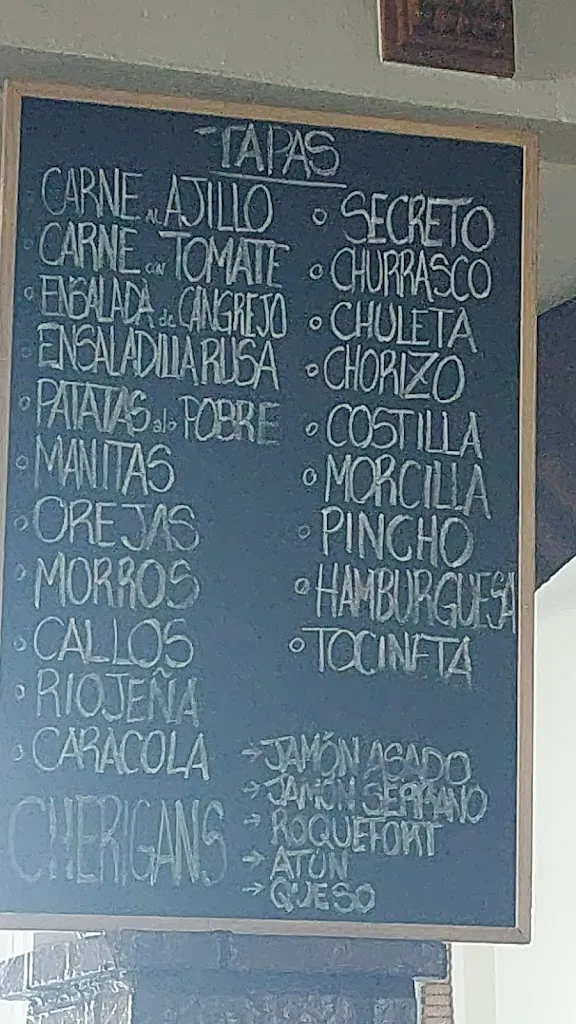 TAPAS
CARNE AL AJILLO
CARNE CON TOMATE
ENSALADA de CANGREJO
ENSALADILLA RUSA
PATATAS a lo POBRE
MANITAS
OREJAS
MORROS
CALLOS
RIOJEÑA
CARACOLA
SECRETO
CHURRASCO
CHULETA
CHORIZO
COSTILLA
MORCILLA
PINCHO
HAMBURGUESA
TOCINETA
CHERIGANS
→ JAMÓN ASADO
→ JAMÓN SERRANO
→ ROQUEFORT
→ ATÚN
→ QUESO